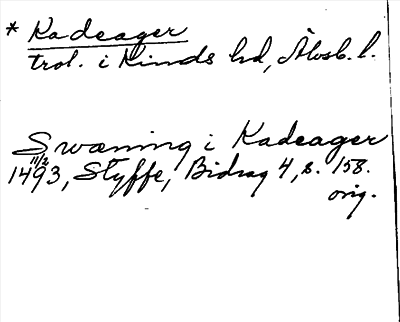 * Kadeager
trol. i Kinds hd, Älvsb. l.
Swæning i Kadeager
11/2 1493, Styffe, Bidrag 4, s. 158.
orig.